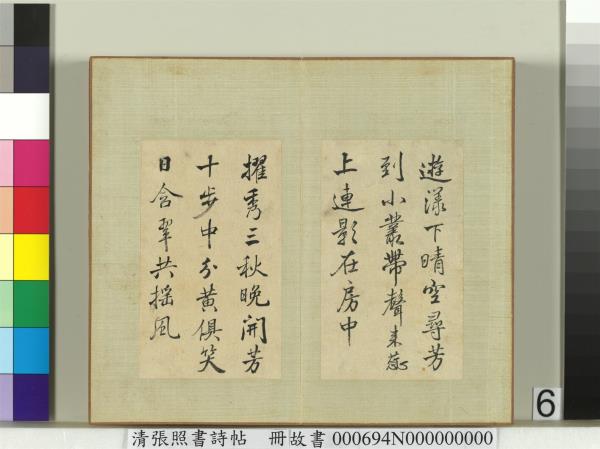 遊漾下晴空尋芳
到小叢帶聲来蕊
上連影在房中
擢秀三秋晚開芳
十步中分黄俱笑
日含翠共摇風
6
清張照書詩帖 冊故書 000694N000000000